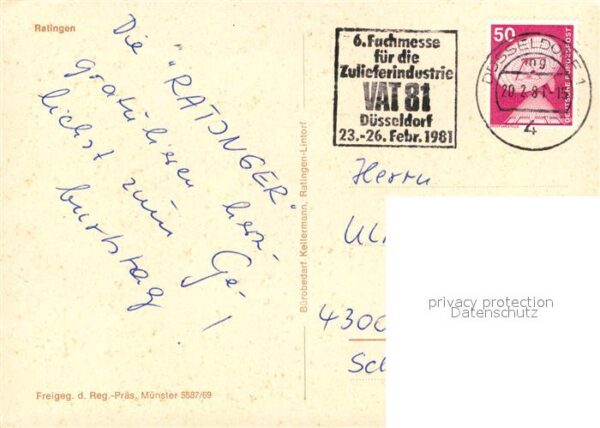 Ratingen
Die "RATINGER"
gratulieren herz-
lichst zum Ge-
burtstag !
Bürobedarf Kellermann, Ratingen-Lintorf
Freigeg. d. Reg.-Präs, Münster 5587/69
6. Fachmesse
für die
Zulieferindustrie
VAT 81
Düsseldorf
23.-26. Febr. 1981
50
DEUTSCHE BUNDESPOST
DÜSSELDORF 1
20.2.81-15
4
Herrn
Ul
4300
Sc
privacy protection
Datenschutz